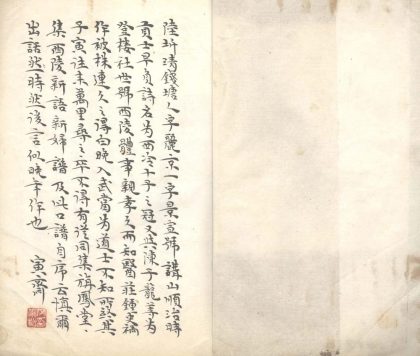 陸圻清錢塘人字麗京一字景宣號講山順治時
貢士早負詩名为西泠十子之冠又與陳子龍等为
登楼社世號西陵體事親孝久而知醫莊鍾史禍
作被株連久之得白晚入武當为道士不知所終其
子寅往來萬里尋之卒不得有從同集旗鳳堂
集西陵新語新婦譜及此口譜自序云慎爾
出話然時然後言似晚年作也
寅齋